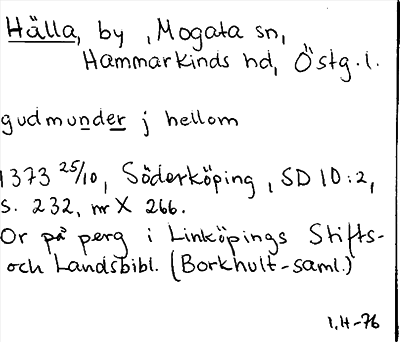 Hälla, by, Mogata sn,
Hammarkinds hd, Östg.l.
gudmunder j hellom
1373 25/10, Söderköping, SD 10:2,
s. 232, nr X 266.
Or på perg i Linköpings Stifts-
och Landsbibl. (Borkhult-saml.)
I.H-76